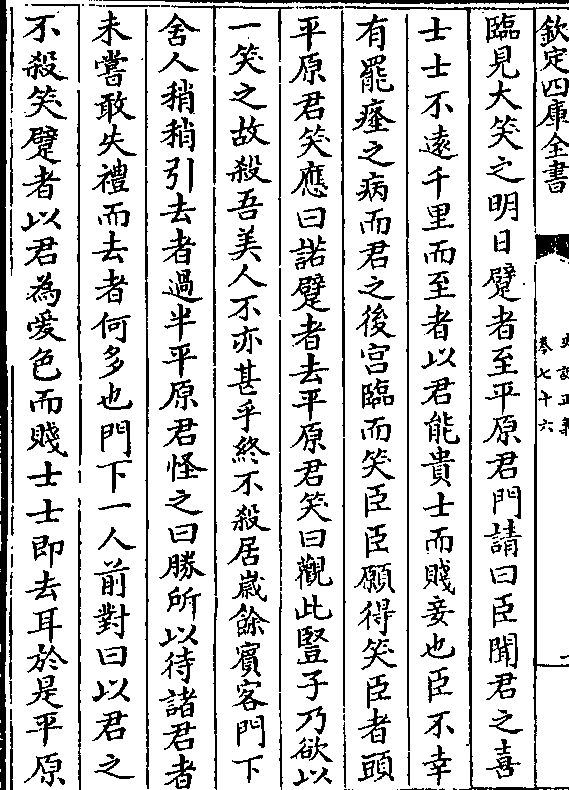 欽定四庫全書
史記正義
卷七十六
臨見大笑之明日躄者至平原君門請曰臣聞君之喜
士士不遠千里而至者以君能貴士而賤妾也臣不幸
有罷癃之病而君之後宫臨而笑臣臣願得笑臣者頭
平原君笑應曰諾躄者去平原君笑曰觀此豎子乃欲以
一笑之故殺吾美人不亦甚乎終不殺居歳餘賓客門下
舍人稍稍引去者過半平原君怪之曰勝所以待諸君者
未嘗敢失禮而去者何多也門下一人前對曰以君之
不殺笑躄者以君為愛色而賤士士即去耳於是平原